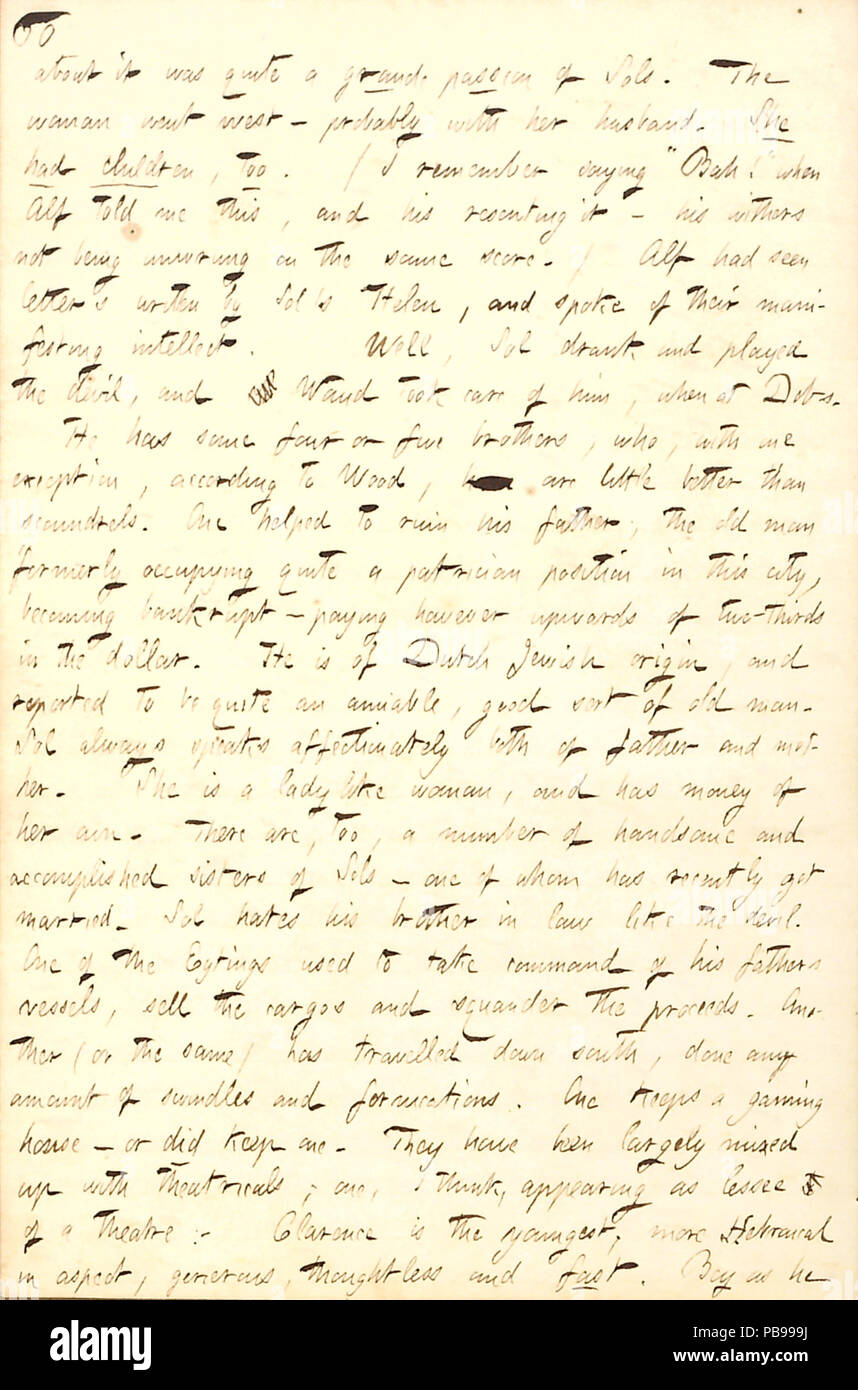 about it was quite a grand passion of Sols. The
woman went west — probably with her husband. She
had children, too. (I remember saying "Bah!" when
Alf told me this, and his resenting it — his withers
not being unwrung on the same score.) Alf had seen
letter's writen by Sol's Helen, and spoke of their mani-
festing intellect. Well, Sol drank and played
the devil, and Wand took care of him, when at Dobs.
He has some four or five brothers, who, with one
exception, according to Wood, are little better than
scoundrels. One helped to ruin his father, the old man
formerly occupying quite a patrician position in this city,
becoming bankrupt — paying however upwards of two-thirds
in the dollar. He is of Dutch Jewish origin, and
reported to be quite an amiable, good sort of old man.
Sol always speaks affectionately both of father and mot-
her. She is a ladylike woman, and has money of
her own. There are, too, a number of handsome and
accomplished sisters of Sols — one of whom has recently got
married. Sol hates his brother in law like the devil.
One of the Eytings used to take command of his fathers
vessels, sell the cargos and squander the proceeds. Ano-
ther (or the same) has travelled down south, done any
amount of swindles and fornications. One keeps a gaming
house — or did keep one. They have been largely mixed
up with theatricals; one, I think, appearing as lessee
of a theatre :- Clarence is the youngest; more Hebraical
in aspect, generous, thoughtless and fast. Boy as he
alamy
Image ID: PB999J
www.alamy.com